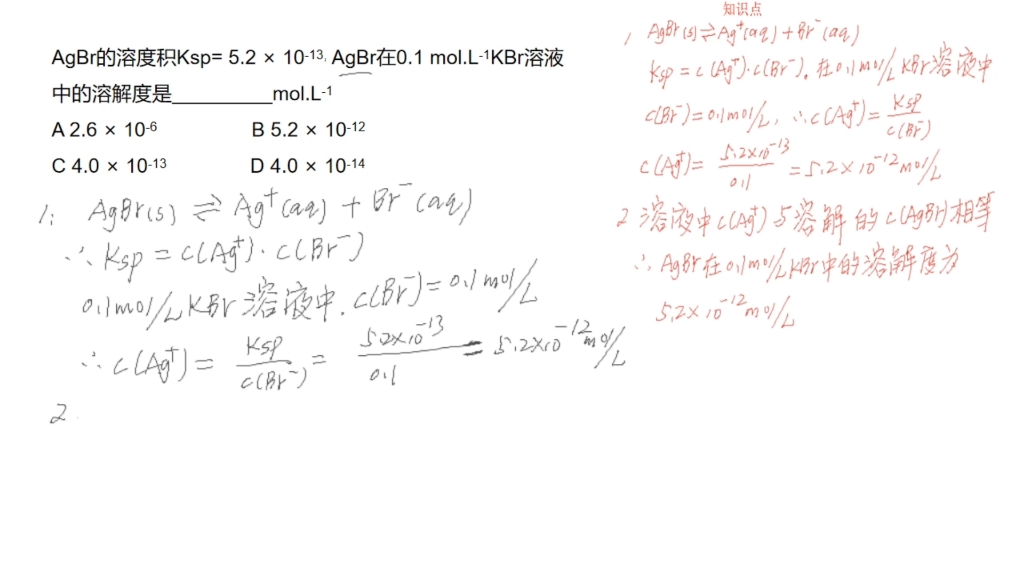 AgBr的溶度积Ksp= 5.2 × 10-13, AgBr在0.1 mol.L-1KBr溶液
中的溶解度是_________mol.L-1
A 2.6 × 10-6 B 5.2 × 10-12
C 4.0 × 10-13 D 4.0 × 10-14
1: AgBr(s) ⇌ Ag⁺(aq) + Br⁻(aq)
∴ Ksp = c(Ag⁺)·c(Br⁻)
0.1mol/L KBr溶液中. c(Br⁻)=0.1mol/L
∴ c(Ag⁺) = Ksp/c(Br⁻) = 5.2×10⁻¹³/0.1 = 5.2×10⁻¹² mol/L
2.
知识点
1 AgBr(s)⇌Ag⁺(aq)+Br⁻(aq)
Ksp = c(Ag⁺)·c(Br⁻)。在0.1mol/L KBr溶液中
c(Br⁻)=0.1mol/L, ∴c(Ag⁺)= Ksp/c(Br⁻)
c(Ag⁺)= 5.2×10⁻¹³/0.1 = 5.2×10⁻¹² mol/L
2 溶液中c(Ag⁺)与溶解的c(AgBr)相等
∴ AgBr在0.1mol/L KBr中的溶解度为
5.2×10⁻¹² mol/L